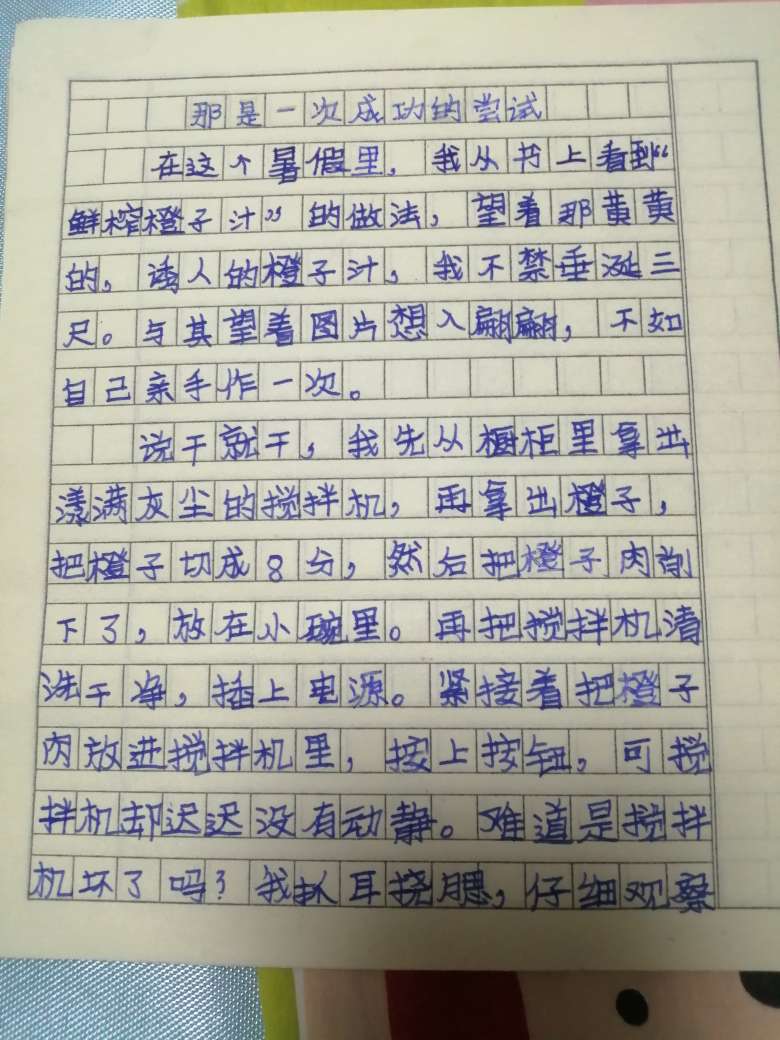 那是一次成功的尝试
在这个暑假里，我从书上看到“
鲜榨橙子汁”的做法，望着那黄黄
的，诱人的橙子汁，我不禁垂涎三
尺。与其望着图片想入翩翩，不如
自己亲手作一次。
说干就干，我先从橱柜里拿出
漾满灰尘的搅拌机，再拿出橙子，
把橙子切成8分，然后把橙子肉削
下了，放在小碗里。再把搅拌机清
洗干净，插上电源。紧接着把橙子
肉放进搅拌机里，按上按钮，可搅
拌机却迟迟没有动静。难道是搅拌
机坏了吗？我抓耳挠腮，仔细观察